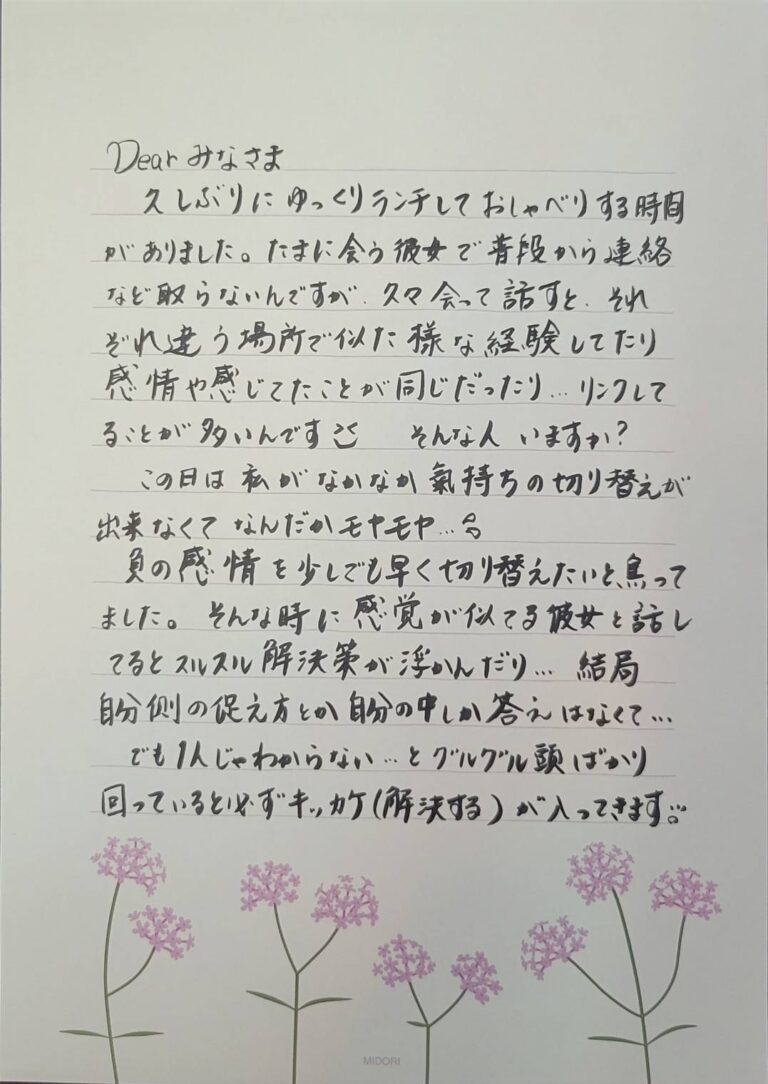 Dear みなさま
久しぶりに ゆっくりランチして おしゃべりする時間
がありました。たまに会う彼女で普段から連絡
など取らないんですが、久々会って話すと、それ
ぞれ違う場所で似た様な経験してたり
感情や感じてたことが同じだったり…リンクして
ることが多いんです そんな人 いますか?
この日は 私がなかなか氣持ちの切り替えが
出来なくて なんだかモヤモヤ…
負の感情を少しでも早く切り替えたいと、焦って
ました。そんな時に感覚が似てる彼女と話し
てるとスルスル解決策が浮かんだり… 結局
自分側の促え方とか自分の中しか答えはなくて…
でも1人じゃわからない…とグルグル頭ばかり
回っていると必ずキッカケ(解決する)が入ってきます
MIDORI